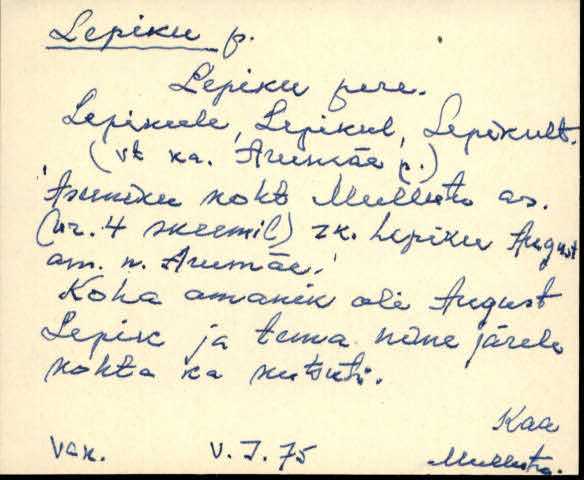 Lepiku p.
Lepiku pere.
Lepikule, Lepikul, Lepikult.
(vt ka. Arumäe p.)
'Asuniku koht Mullutu as.
(nr. 4 skeemil) zk. Lepiku August
am. n. Arumäe.'
Koha omanik oli August
Lepik ja tema nime järele
kohta ka kutsuti.
Kaa
Van. V. I. 75 Mullutu.